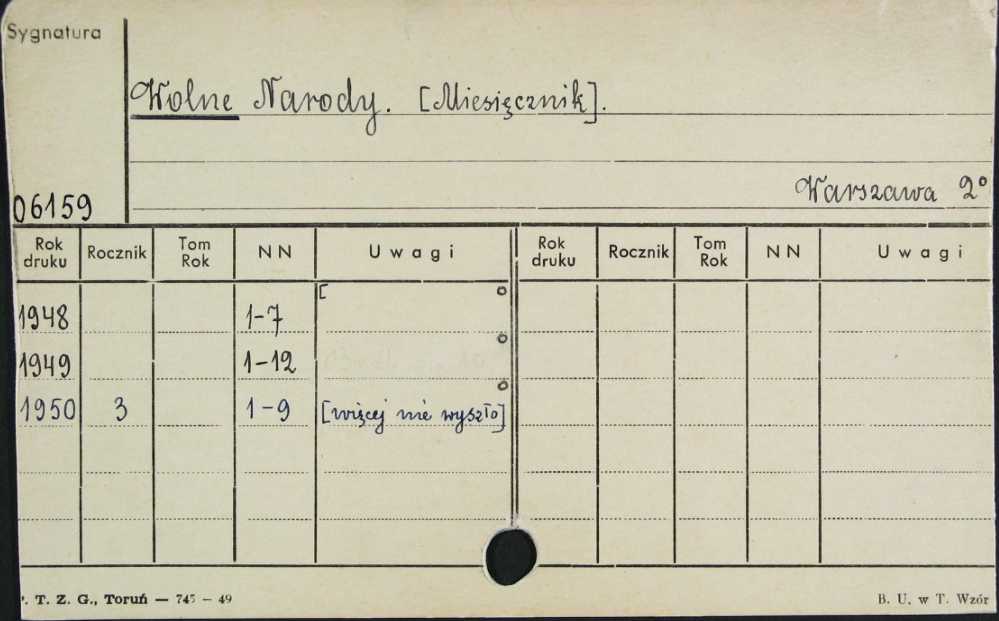 Sygnatura
Wolne Narody. [Miesięcznik].
Warszawa 2°
06159
Rok druku Rocznik Tom Rok NN Uwagi Rok druku Rocznik Tom Rok NN Uwagi
[ o
1948 1-7
o
1949 1-12
o
1950 3 1-9 [więcej nie wyszło]
. T. Z. G., Toruń — 745 — 49 B. U. w T. Wzór